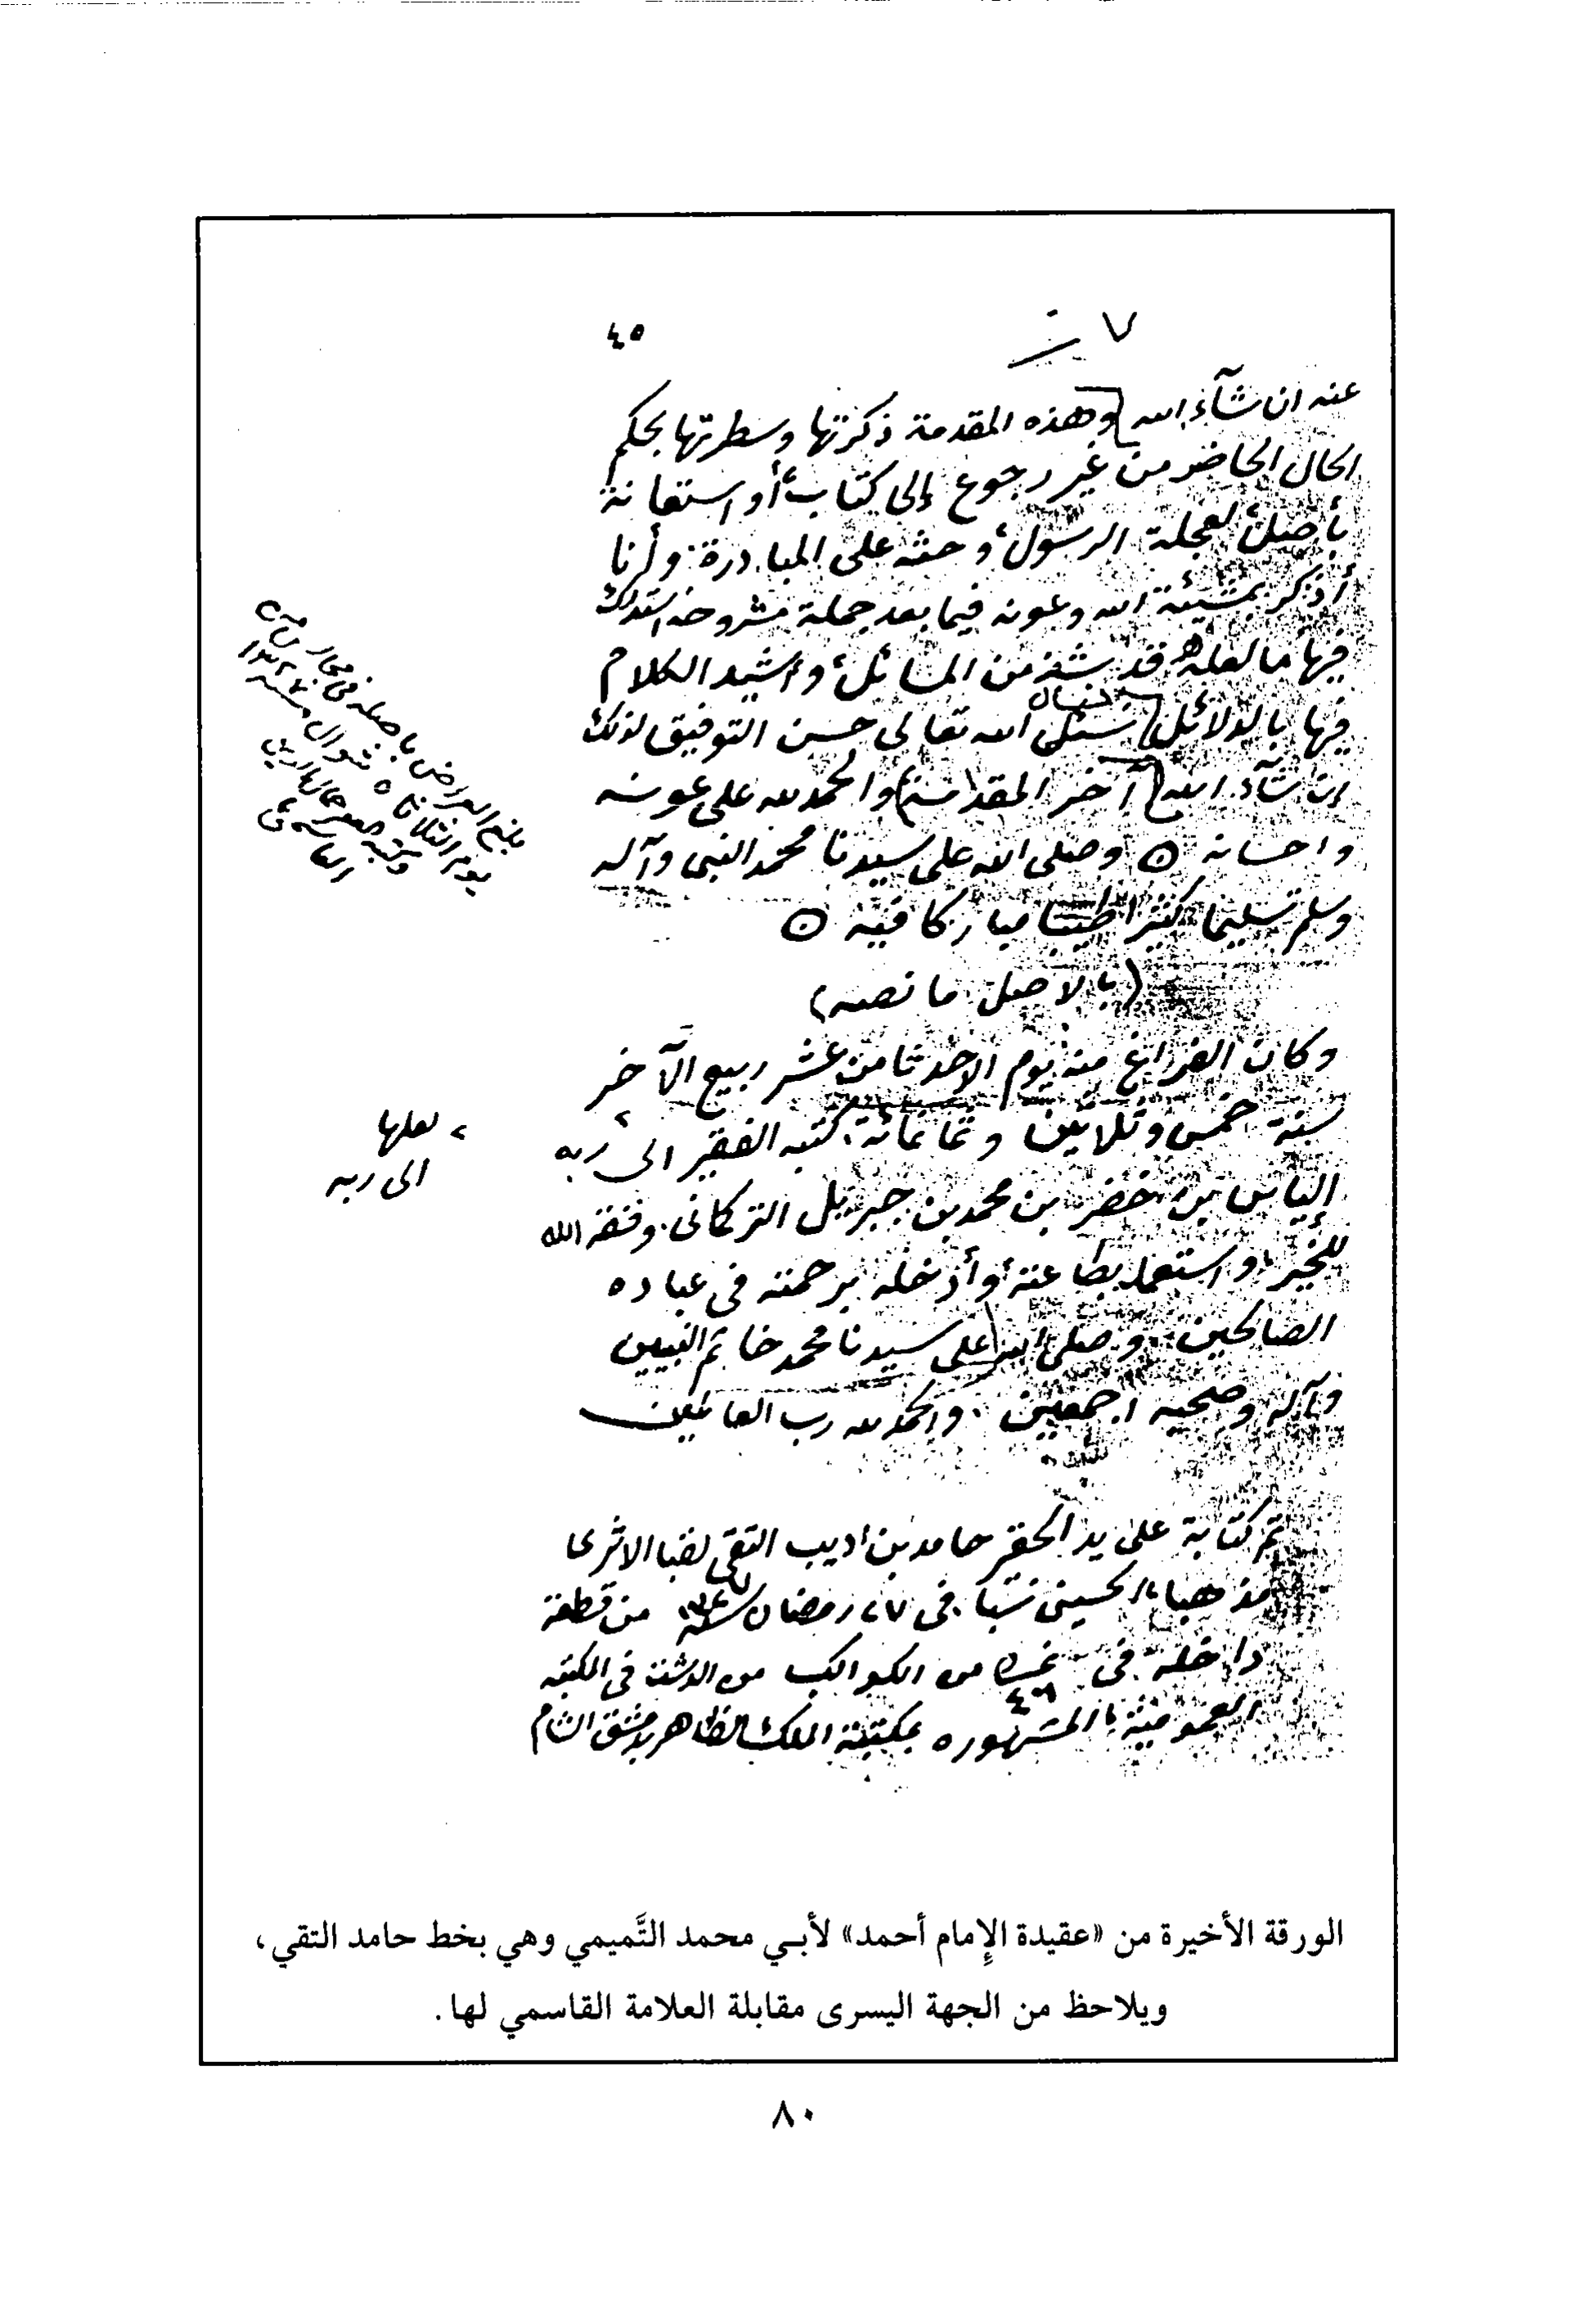 ٤٥
عنه ان شآء الله وهذه المقدمة ذكرتها وسطرتها بحكم
الحال الحاضر من غير رجوع إلى كتاب أو استعانة
بأصل لعجلة الرسول وحثه على المبادرة وأنا
أذكر بمشيئة الله وعونه فيما بعد جملة مشروحة استدرك
فيها ما لعله قد شذ من المسائل وأشيد الكلام
فيها بالدلائل نسئل الله تعالى حسن التوفيق لذلك
ان شآء الله (آخر المقدمة) والحمد لله على عونه
واحسانه ۞ وصلى الله على سيدنا محمد النبي وآله
وسلم تسليما كثيرا طيبا مباركا فيه ۞
(بالاصل ما نصه)
وكان الفراغ منه يوم الاحد ثامن عشر ربيع الآخر
سنة خمس وثلاثين وثمانمائة كتبه الفقير الى ربه
إلياس بن خضر بن محمد بن جبريل التركماني وفقه الله
للخير واستعمله بطاعته وأدخله برحمته في عباده
الصالحين وصلى الله على سيدنا محمد خاتم النبيين
وآله وصحبه اجمعين والحمد لله رب العالمين
تم كتابة على يد الحقير حامد بن اديب التقي لقبا الاثري
مذهبا الحسيني نسبا في ٢٧ رمضان من قطعة
داخلة في من الكواكب من الدشت في المكتبه
العمومية المشهوره بمكتبة الملك الظاهر بدمشق الشام
بلغ العراض باصله في مجالس
يوم الثلاثا ٥ شوال سنة
وكتبه جمال الدين
القاسمي
لعلها
الى ربه
الورقة الأخيرة من «عقيدة الإمام أحمد» لأبي محمد التَّميمي وهي بخط حامد التقي،
ويلاحظ من الجهة اليسرى مقابلة العلامة القاسمي لها.
٨٠